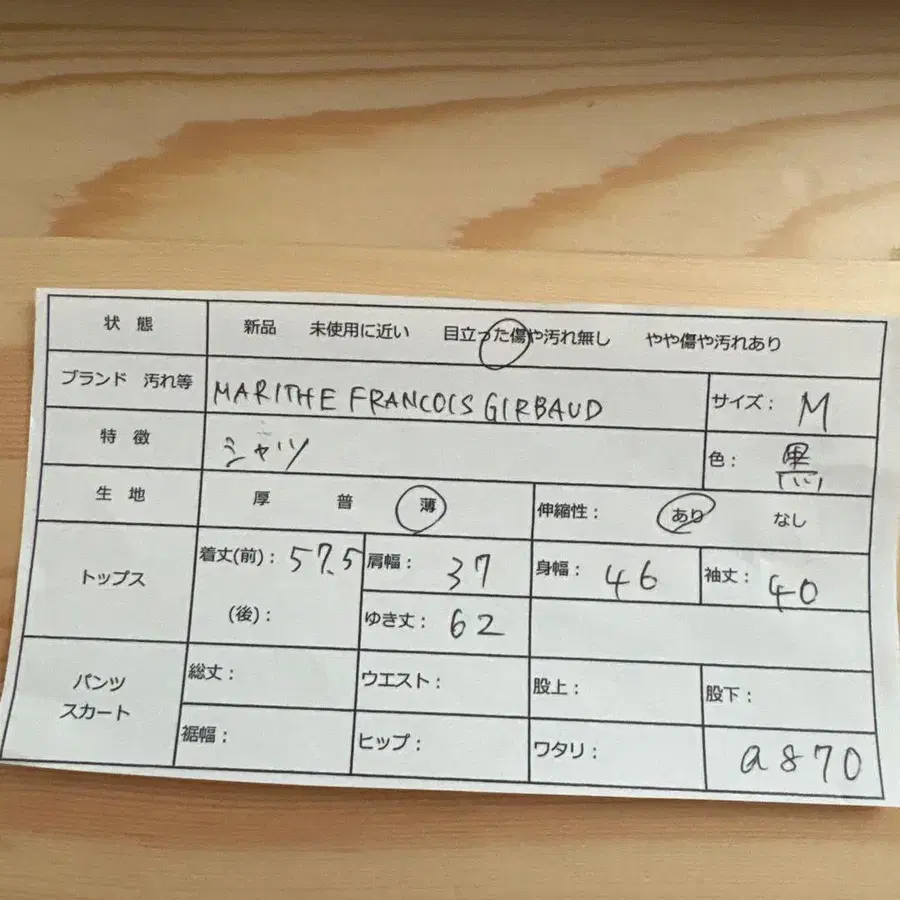 状 態 新品 未使用に近い 目立った傷や汚れ無し やや傷や汚れあり
ブランド 汚れ等 MARITHE FRANCOIS GIRBAUD サイズ： M
特 徴 シャツ 色： 黒
生 地 厚 普 薄 伸縮性： あり なし
トップス 着丈(前)： 57.5 肩幅： 37 身幅： 46 袖丈： 40
(後)： ゆき丈： 62
パンツ スカート 総丈： ウエスト： 股上： 股下：
裾幅： ヒップ： ワタリ： a870